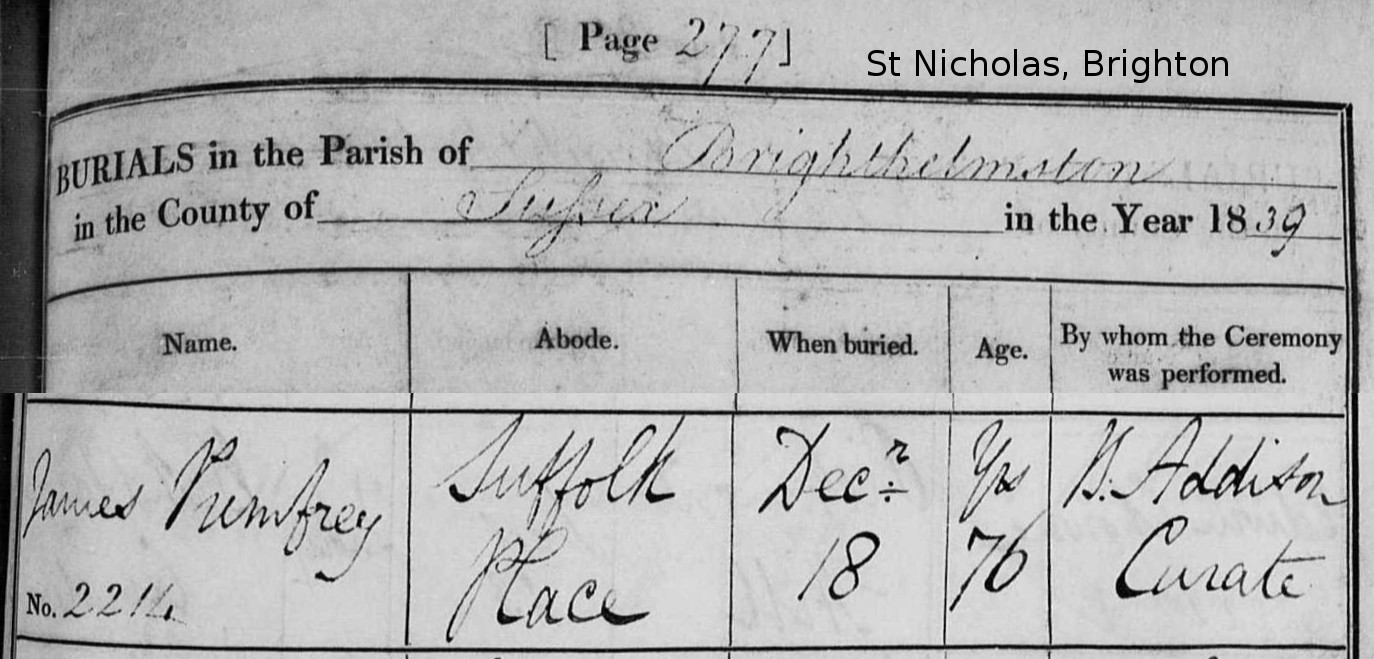 [ Page 277]
St Nicholas, Brighton
BURIALS in the Parish of Brighthelmston
in the County of Sussex in the Year 1839
Name. Abode. When buried. Age. By whom the Ceremony was performed.
James Pumfrey
No. 2214
Suffolk
Place
Decr
18
Yrs
76
Addison
Curate